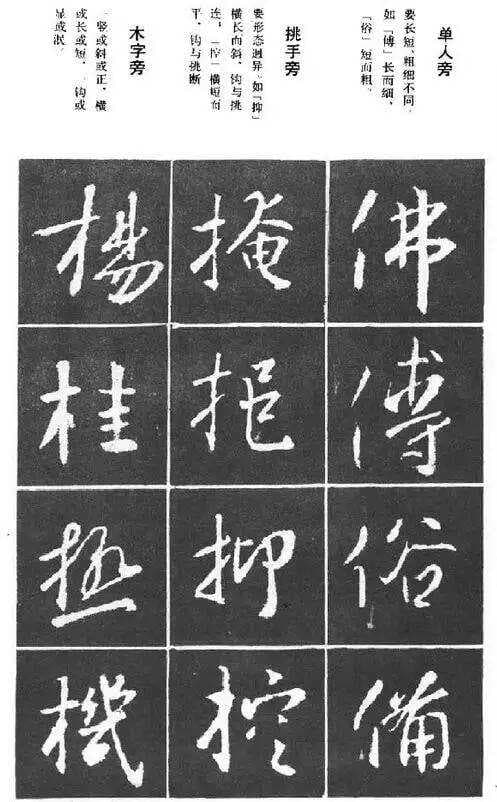 单人旁
要长短、粗细不同。
如「傅」长而细，
「俗」短而粗。
挑手旁
要形态迥异。如「抑」
横长而斜，钩与挑
连，「控」横短而
平，钩与挑断
木字旁
一竖或斜或正，横
或长或短，一钩或
显或泯。
佛
傅
俗
備
掩
挹
抑
控
楊
桂
極
機